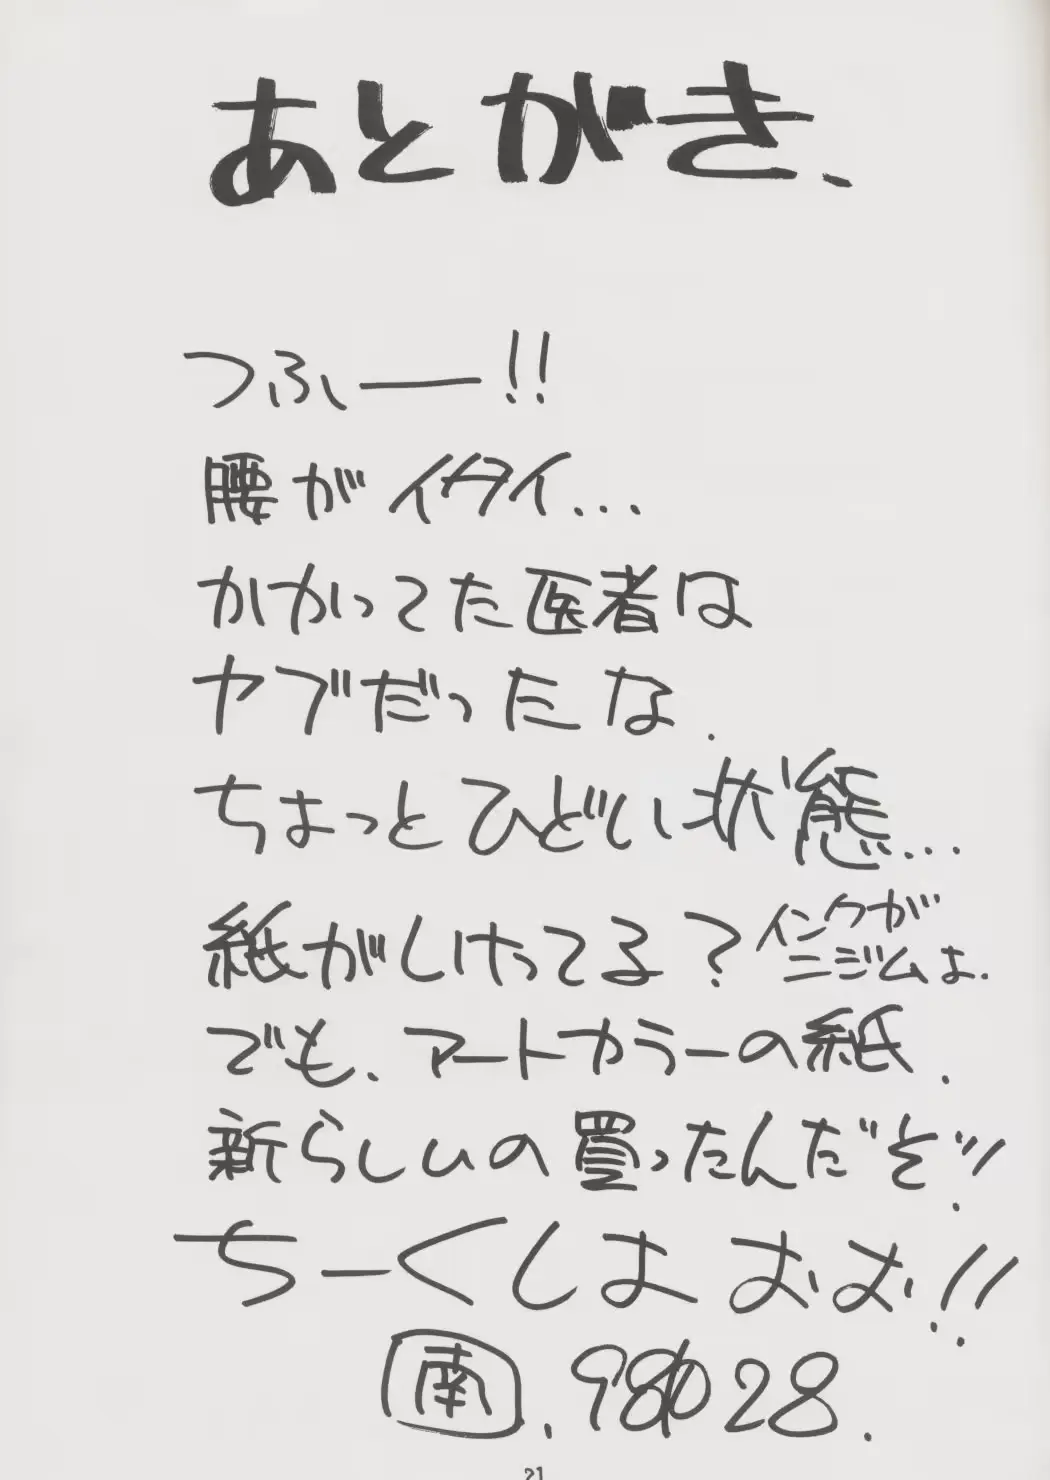 あとがき、
つふー!!
腰がイタイ...
かかってた医者は
ヤブだったな.
ちょっとひどい状態...
紙がしけってる?インクが
ニジムよ.
でも、アートカラーの紙.
新らしいの買ったんだぞッ!
ちーくしょおお!!
南.
28.
21